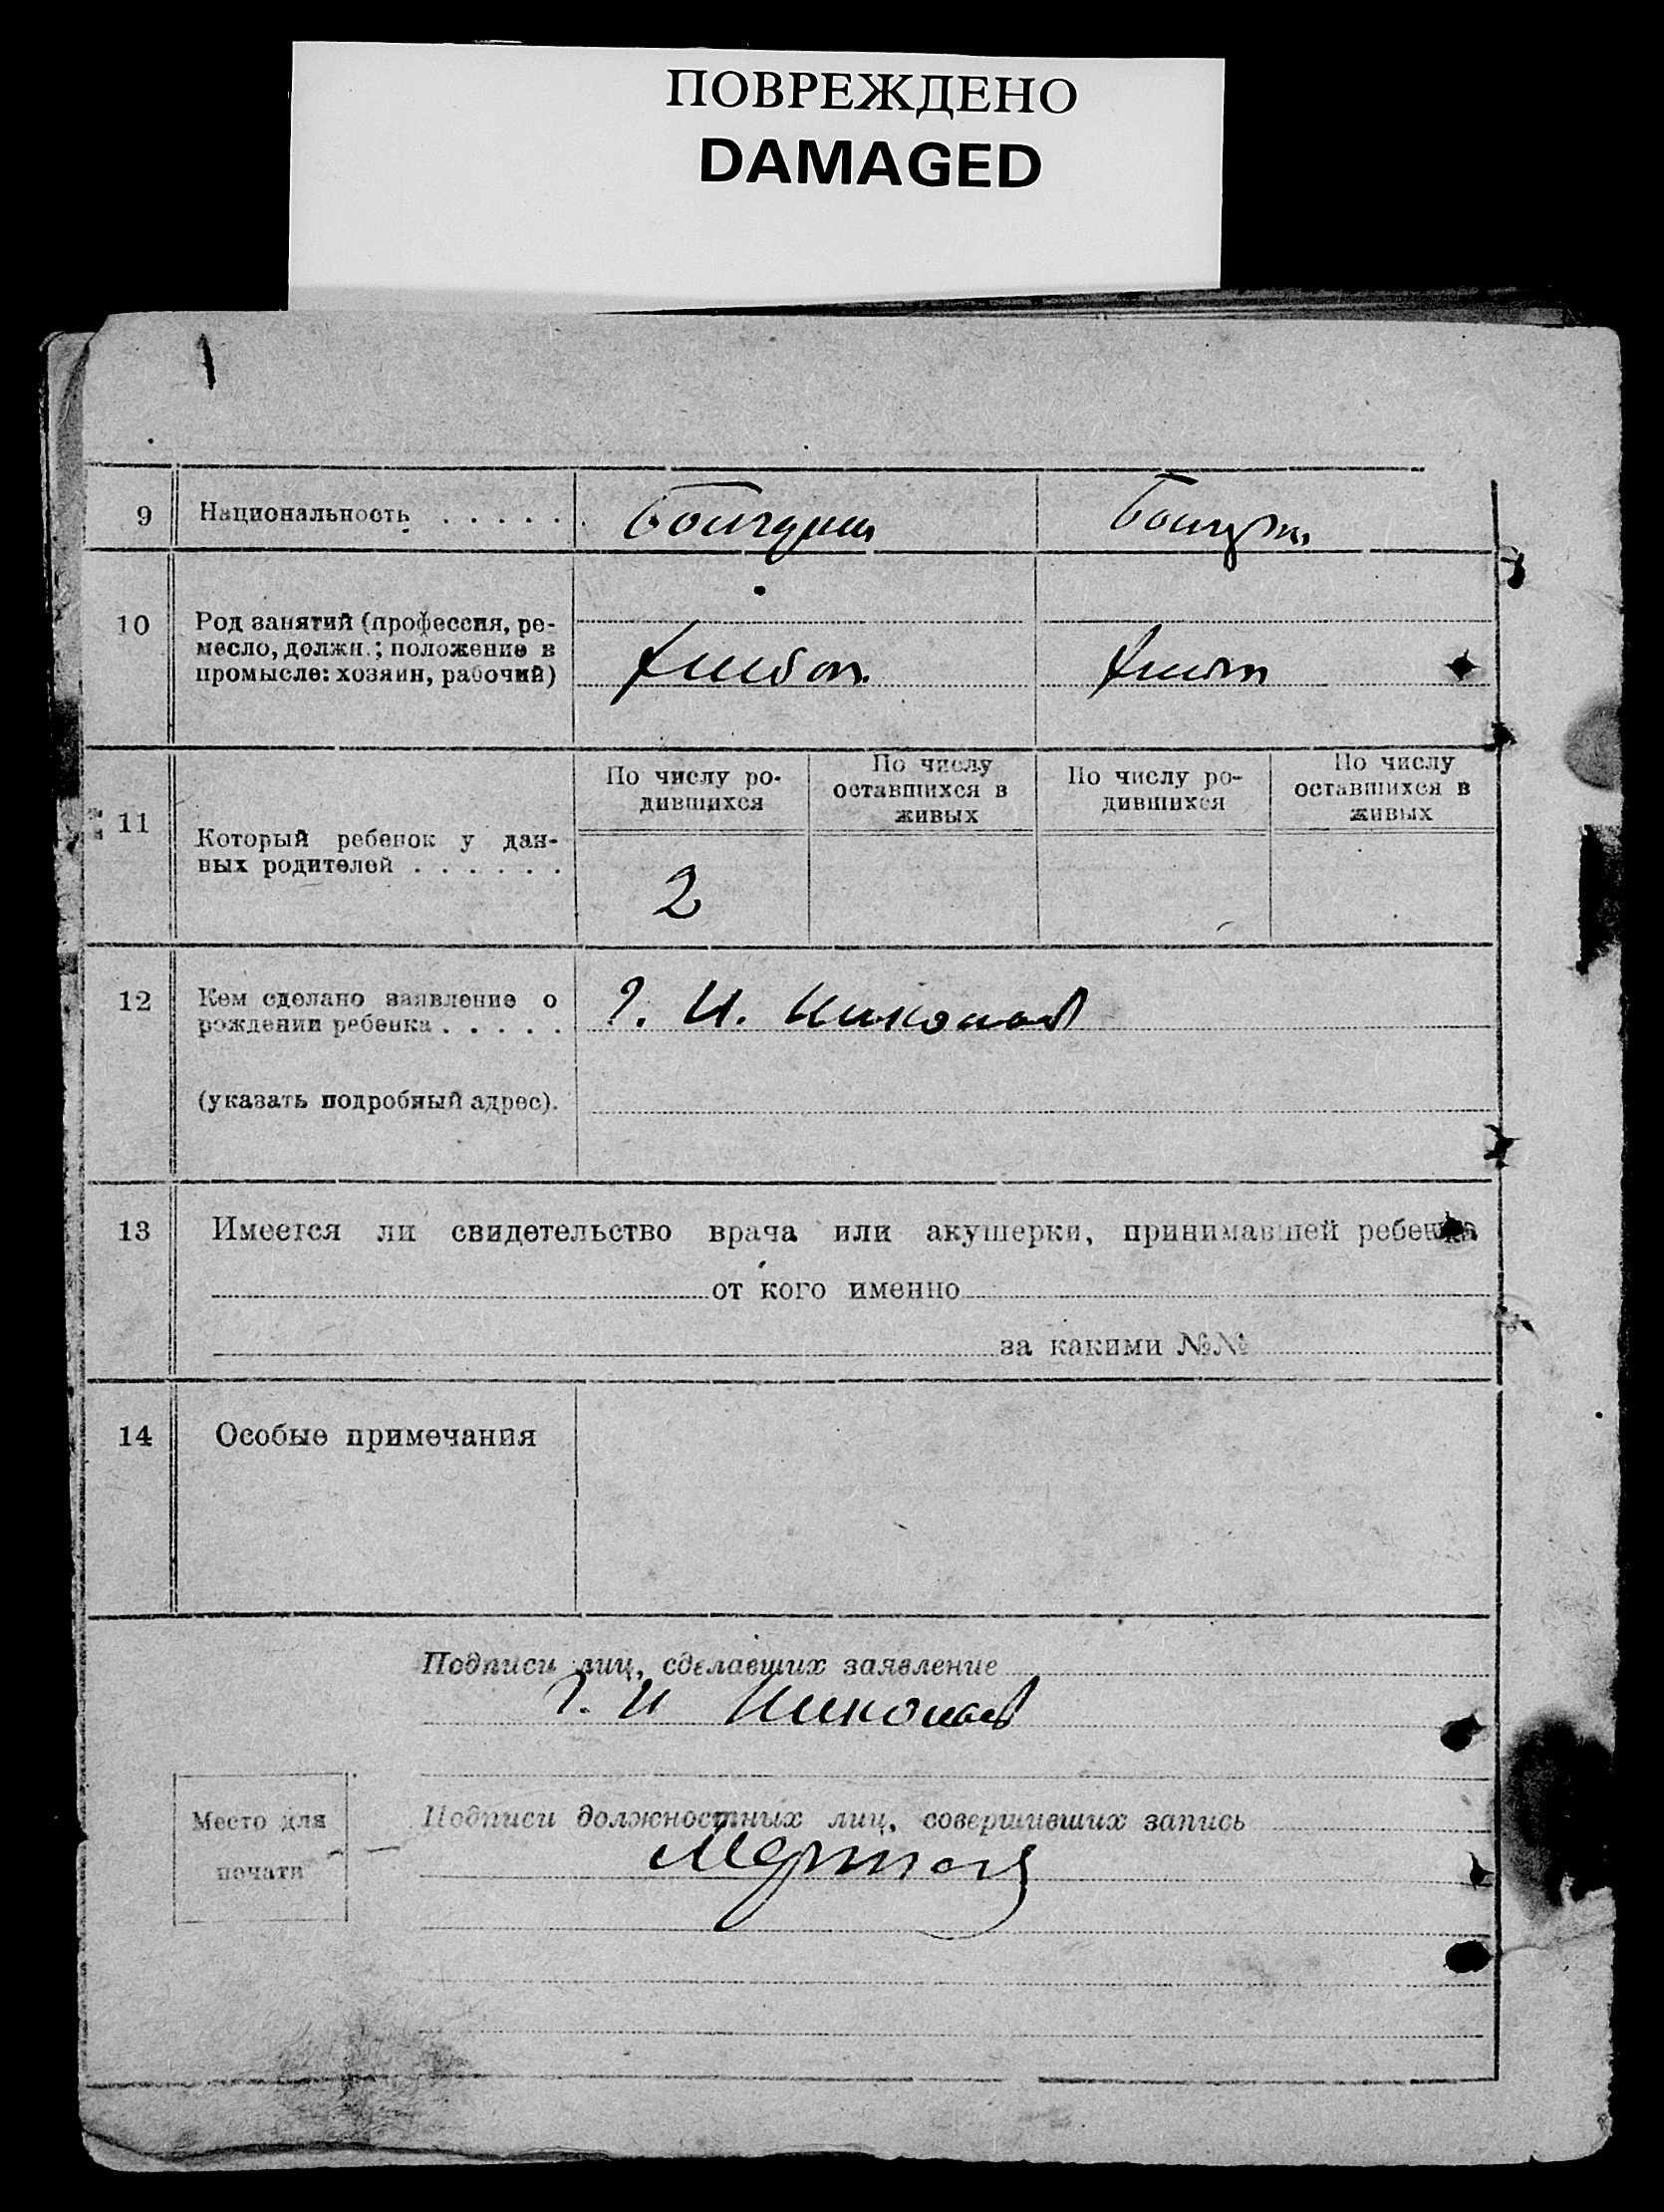 ПОВРЕЖДЕНО
DAMAGED
9 Национальность . . . . . .
10 Род занятий (профессия, ре-
месло, должн.; положение в
промысле: хозяин, рабочий)
хлебоп.
11 Который ребенок у дан-
ных родителей . . . . . .
По числу ро-
дившихся
По числу
оставшихся в
живых
По числу ро-
дившихся
По числу
оставшихся в
живых
2
12 Кем сделано заявление о
рождении ребенка . . . . .
(указать подробный адрес).
Г. И. Николаев
13 Имеется ли свидетельство врача или акушерки, принимавшей ребенка
от кого именно
за какими №№
14 Особые примечания
Подписи лиц, сделавших заявление
Г. И Николаев
Место для
печати
Подписи должностных лиц, совершивших запись